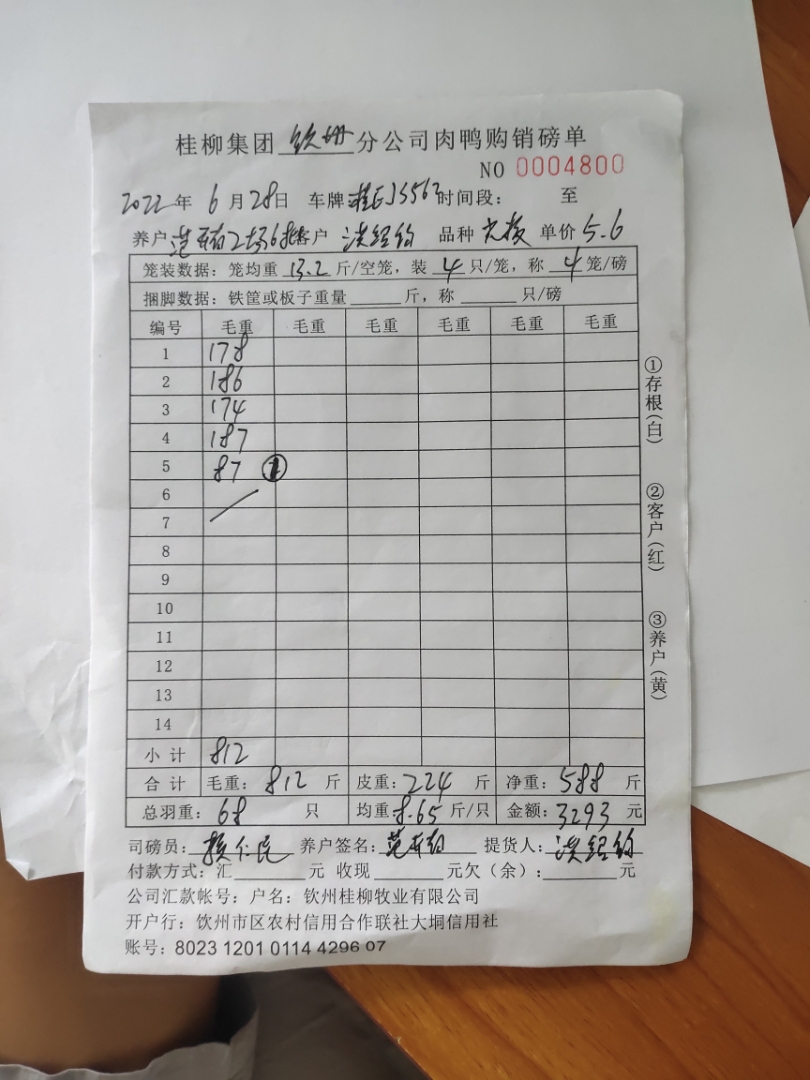 桂柳集团 钦州 分公司肉鸭购销磅单
NO 0004800
2022年 6月28日 车牌 桂EJS563 时间段: 至
养户 客户 洪绍钧 品种 单价 5.6
笼装数据:笼均重 13.2 斤/空笼,装 4 只/笼,称 4 笼/磅
捆脚数据:铁筐或板子重量 斤,称 只/磅
编号 毛重 毛重 毛重 毛重 毛重 毛重
1 178
2 186
3 174
4 187
5 87 ①
6
7
8
9
10
11
12
13
14
小计 812
合计 毛重:812 斤 皮重:224 斤 净重:588 斤
总羽重:68 只 均重8.65 斤/只 金额:3293 元
司磅员: 养户签名: 提货人:
付款方式:汇 元 收现 元欠(余): 元
公司汇款帐号:户名:钦州桂柳牧业有限公司
开户行:饮州市区农村信用合作联社大垌信用社
账号:8023 1201 0114 4296 07
①存根(白)
②客户(红)
③养户(黄)